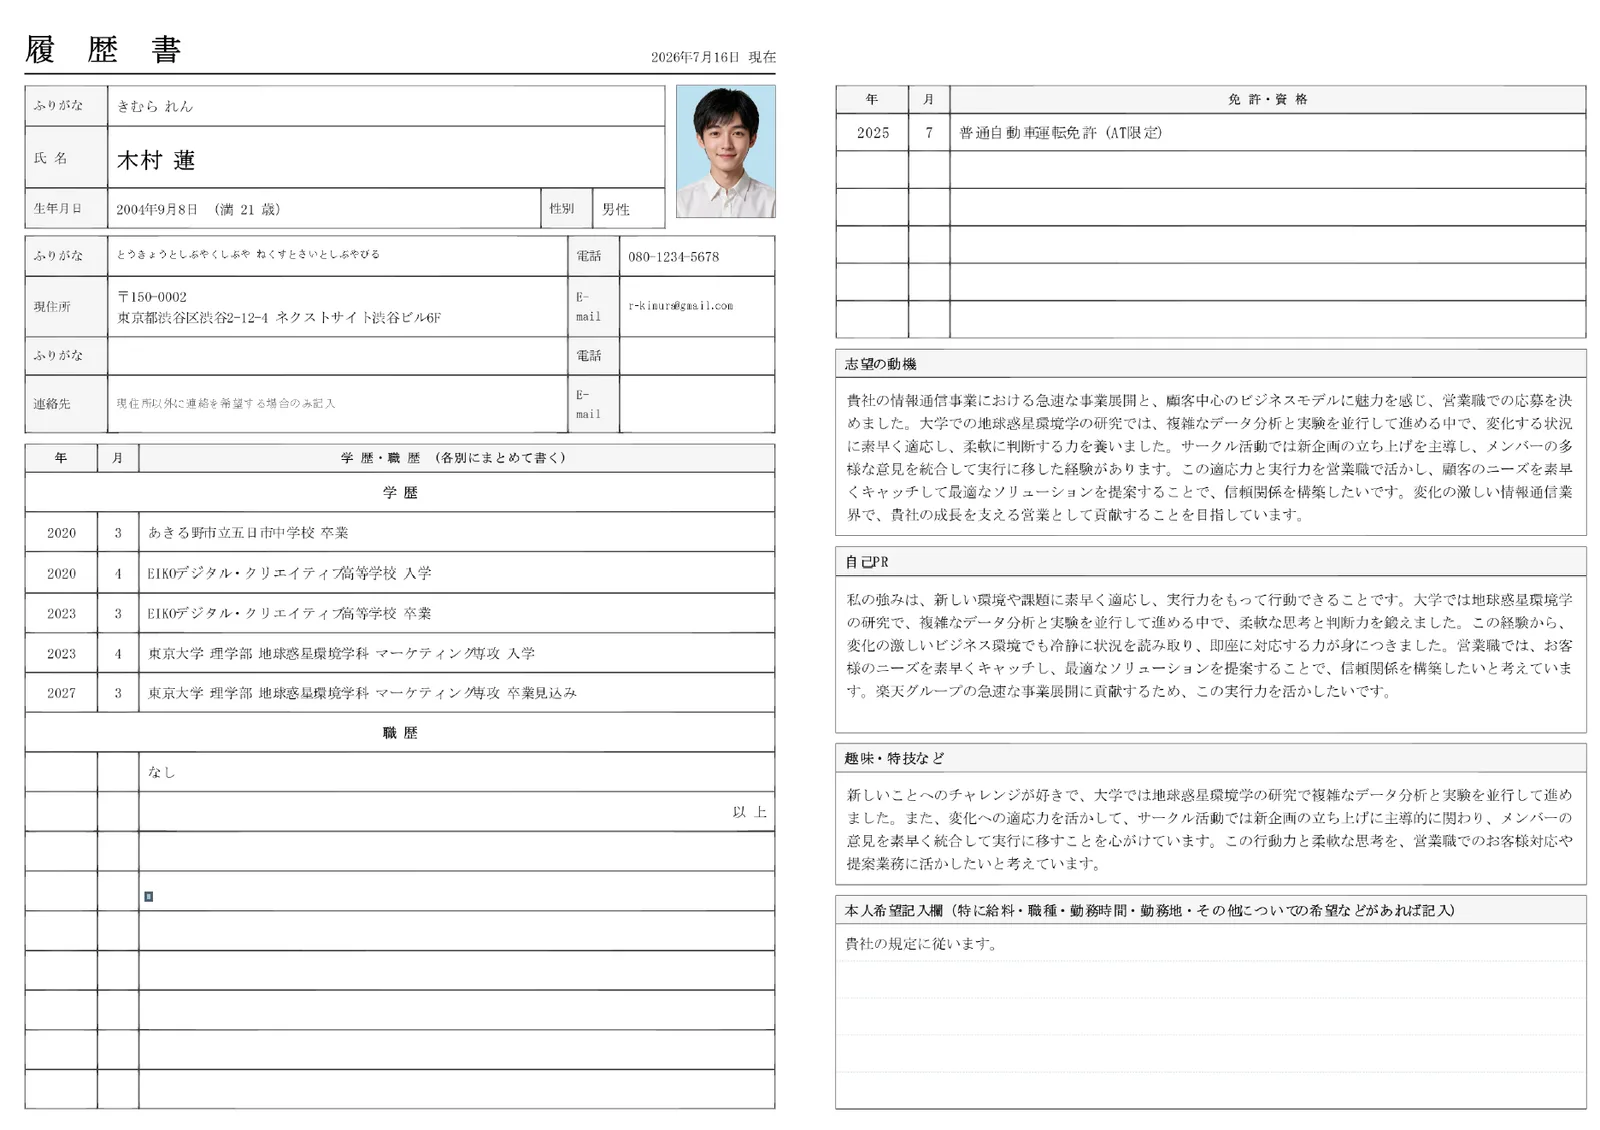 履 歴 書
2026年7月16日 現在
ふりがな きむら れん
氏 名 木村 蓮
生年月日 2004年9月8日 (満 21 歳) 性別 男性
ふりがな とうきょうとしぶやくしぶや ねくすとさいとしぶやびる 電話 080-1234-5678
現住所 〒150-0002
東京都渋谷区渋谷2-12-4 ネクストサイト渋谷ビル6F
E-
mail
r-kimura@gmail.com
ふりがな 電話
連絡先 現住所以外に連絡を希望する場合のみ記入
E-
mail
年 月 学 歴・職 歴 (各別にまとめて書く)
学 歴
2020 3 あきる野市立五日市中学校 卒業
2020 4 EIKOデジタル・クリエイティブ高等学校 入学
2023 3 EIKOデジタル・クリエイティブ高等学校 卒業
2023 4 東京大学 理学部 地球惑星環境学科 マーケティング専攻 入学
2027 3 東京大学 理学部 地球惑星環境学科 マーケティング専攻 卒業見込み
職 歴
なし
以 上
年 月 免 許・資 格
2025 7 普通自動車運転免許 (AT限定)
志望の動機
貴社の情報通信事業における急速な事業展開と、顧客中心のビジネスモデルに魅力を感じ、営業職での応募を決
めました。大学での地球惑星環境学の研究では、複雑なデータ分析と実験を並行して進める中で、変化する状況
に素早く適応し、柔軟に判断する力を養いました。サークル活動では新企画の立ち上げを主導し、メンバーの多
様な意見を統合して実行に移した経験があります。この適応力と実行力を営業職で活かし、顧客のニーズを素早
くキャッチして最適なソリューションを提案することで、信頼関係を構築したいです。変化の激しい情報通信業
界で、貴社の成長を支える営業として貢献することを目指しています。
自己PR
私の強みは、新しい環境や課題に素早く適応し、実行力をもって行動できることです。大学では地球惑星環境学
の研究で、複雑なデータ分析と実験を並行して進める中で、柔軟な思考と判断力を鍛えました。この経験から、
変化の激しいビジネス環境でも冷静に状況を読み取り、即座に対応する力が身につきました。営業職では、お客
様のニーズを素早くキャッチし、最適なソリューションを提案することで、信頼関係を構築したいと考えていま
す。楽天グループの急速な事業展開に貢献するため、この実行力を活かしたいです。
趣味・特技など
新しいことへのチャレンジが好きで、大学では地球惑星環境学の研究で複雑なデータ分析と実験を並行して進め
ました。また、変化への適応力を活かして、サークル活動では新企画の立ち上げに主導的に関わり、メンバーの
意見を素早く統合して実行に移すことを心がけています。この行動力と柔軟な思考を、営業職でのお客様対応や
提案業務に活かしたいと考えています。
本人希望記入欄 (特に給料・職種・勤務時間・勤務地・その他についての希望などがあれば記入)
貴社の規定に従います。